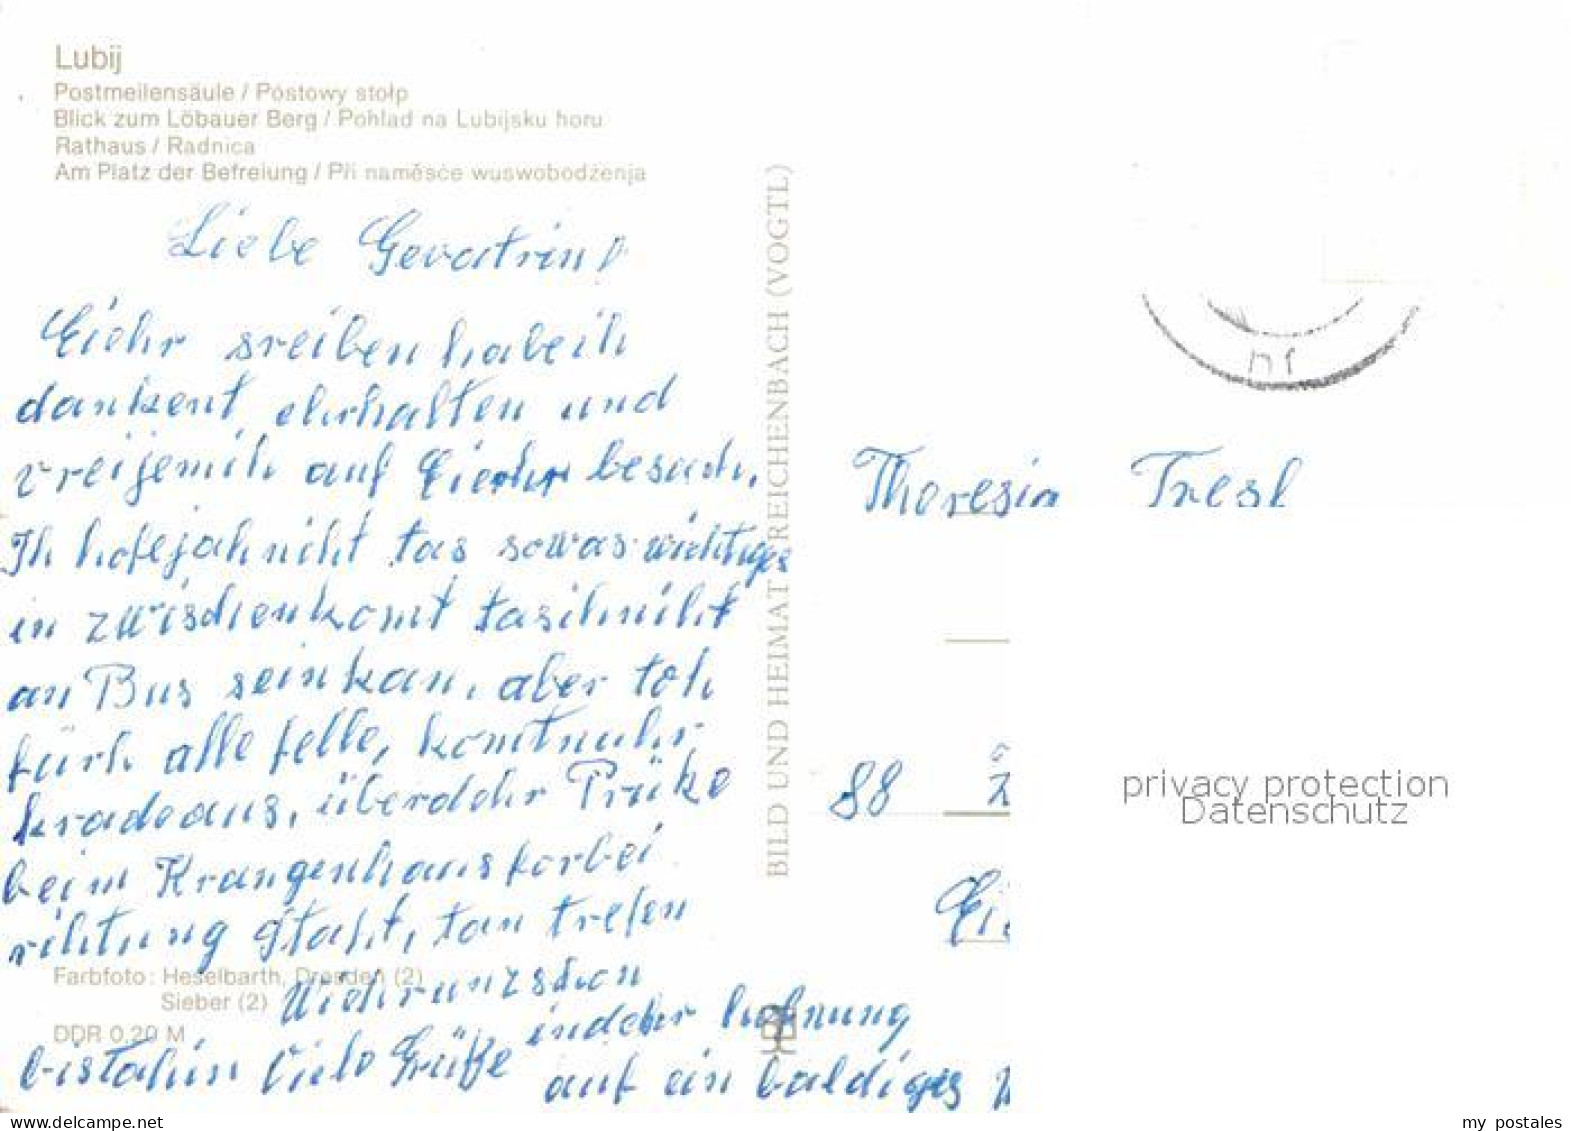 Lubij
Postmeilensäule / Póstowy stołp
Blick zum Löbauer Berg / Pohlad na Lubijsku horu
Rathaus / Radnica
Am Platz der Befreiung / Při naměsće wuswobodźenja
Liebe Gevatrin!
Eiehr sreiben habeih
dankent ehrhalten und
vreijemih auf Eiehr besuch,
Ih hofejah nicht tas sowas wichtiges
in zwischenkomt tasihniht
an Bus sein kan, aber toh
fürh alle felle, komt nuhr
kradeaus, überdehr Prüke
beim Krangenhaus forbei
rihtung Staht, tan trefen
Wiehrunzschon
bistahin Viele Grüße
indehr hofnung
auf ein baldiges
Farbfoto: Heselbarth, Dresden (2)
Sieber (2)
DDR 0,20 M
BILD UND HEIMAT REICHENBACH (VOGTL)
Theresia Tresl
88
privacy protection
Datenschutz
delcampe.net
my_postales